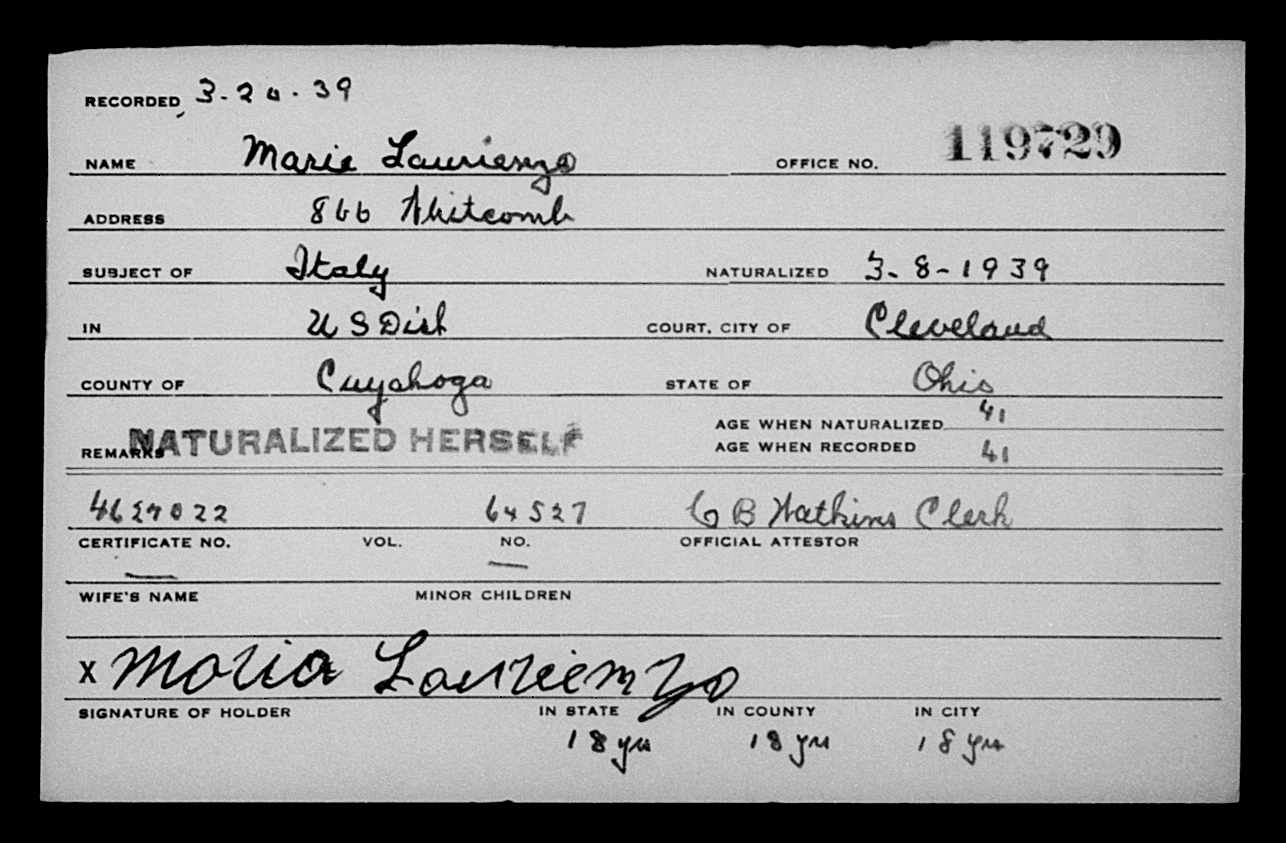 RECORDED 3-20-39
NAME Marie Laurienzo OFFICE NO. 119729
ADDRESS 866 Whitcomb
SUBJECT OF Italy NATURALIZED 3-8-1939
IN U S Dist COURT, CITY OF Cleveland
COUNTY OF Cuyahoga STATE OF Ohio
AGE WHEN NATURALIZED 41
REMARKS NATURALIZED HERSELF AGE WHEN RECORDED 41
64527 C B Watkins Clerk
CERTIFICATE NO. VOL. NO. OFFICIAL ATTESTOR
— —
WIFE'S NAME MINOR CHILDREN
X Maria Laurienzo
SIGNATURE OF HOLDER IN STATE IN COUNTY IN CITY
18 yrs 18 yrs 18 yrs